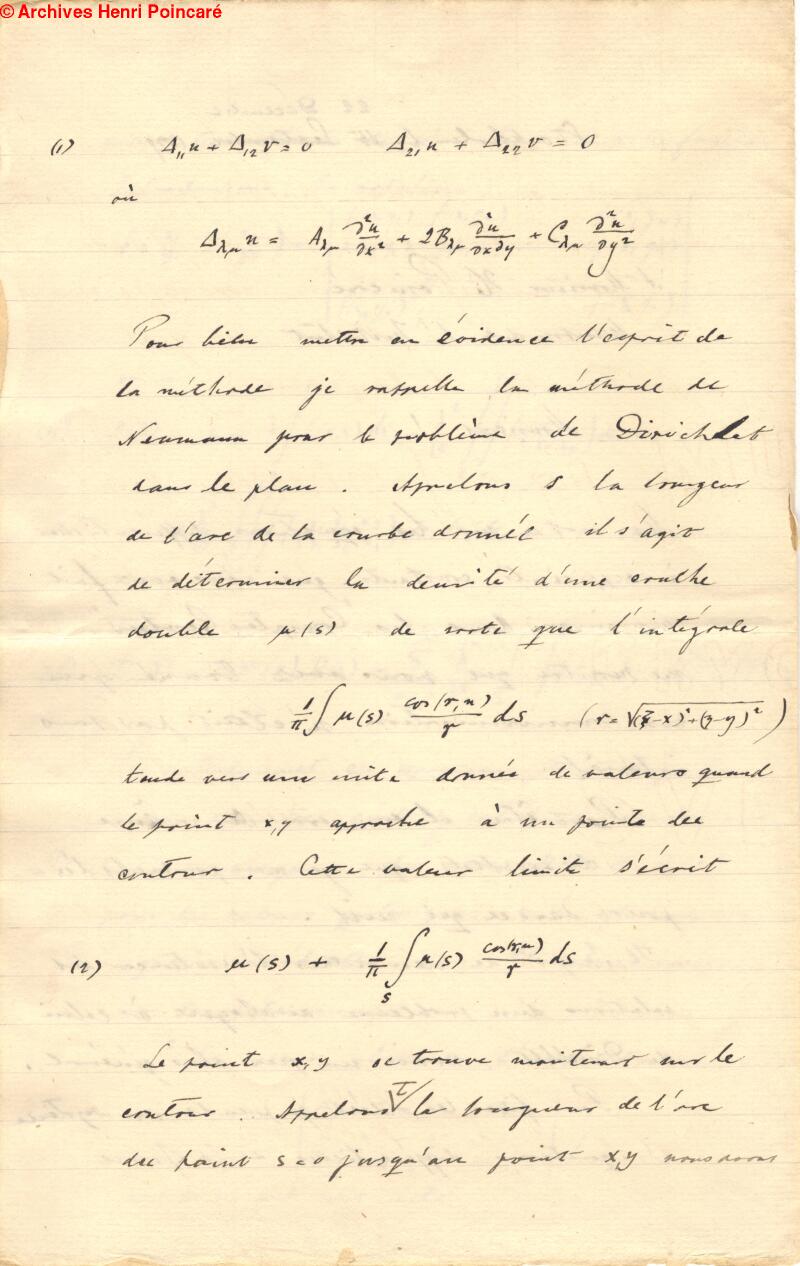 © Archives Henri Poincaré
(1) Δ₁₁u + Δ₁₂v = 0 Δ₂₁u + Δ₂₂v = 0
où
Δ_λμ u = A_λμ ∂²u/∂x² + 2B_λμ ∂²u/∂x∂y + C_λμ ∂²u/∂y²
Pour bien mettre en évidence l'esprit de
la méthode je rappelle la méthode de
Neumann pour le problème de Dirichlet
dans le plan. Appelons s la longeur
de l'arc de la courbe donnée il s'agit
de déterminer la densité d'une couche
double μ(s) de sorte que l'intégrale
1/π ∫ μ(s) cos(r,n)/r ds (r = √(ξ-x)²+(η-y)²)
tende vers une suite donnée de valeurs quand
le point x,y approche à un point du
contour. Cette valeur limite s'écrit
(2) μ(s) + 1/π ∫_S μ(s) cos(r,n)/r ds
Le point x,y se trouve maintenant sur le
contour. Appelons t la longueur de l'arc
du point s=0 jusqu'au point x,y nous avons